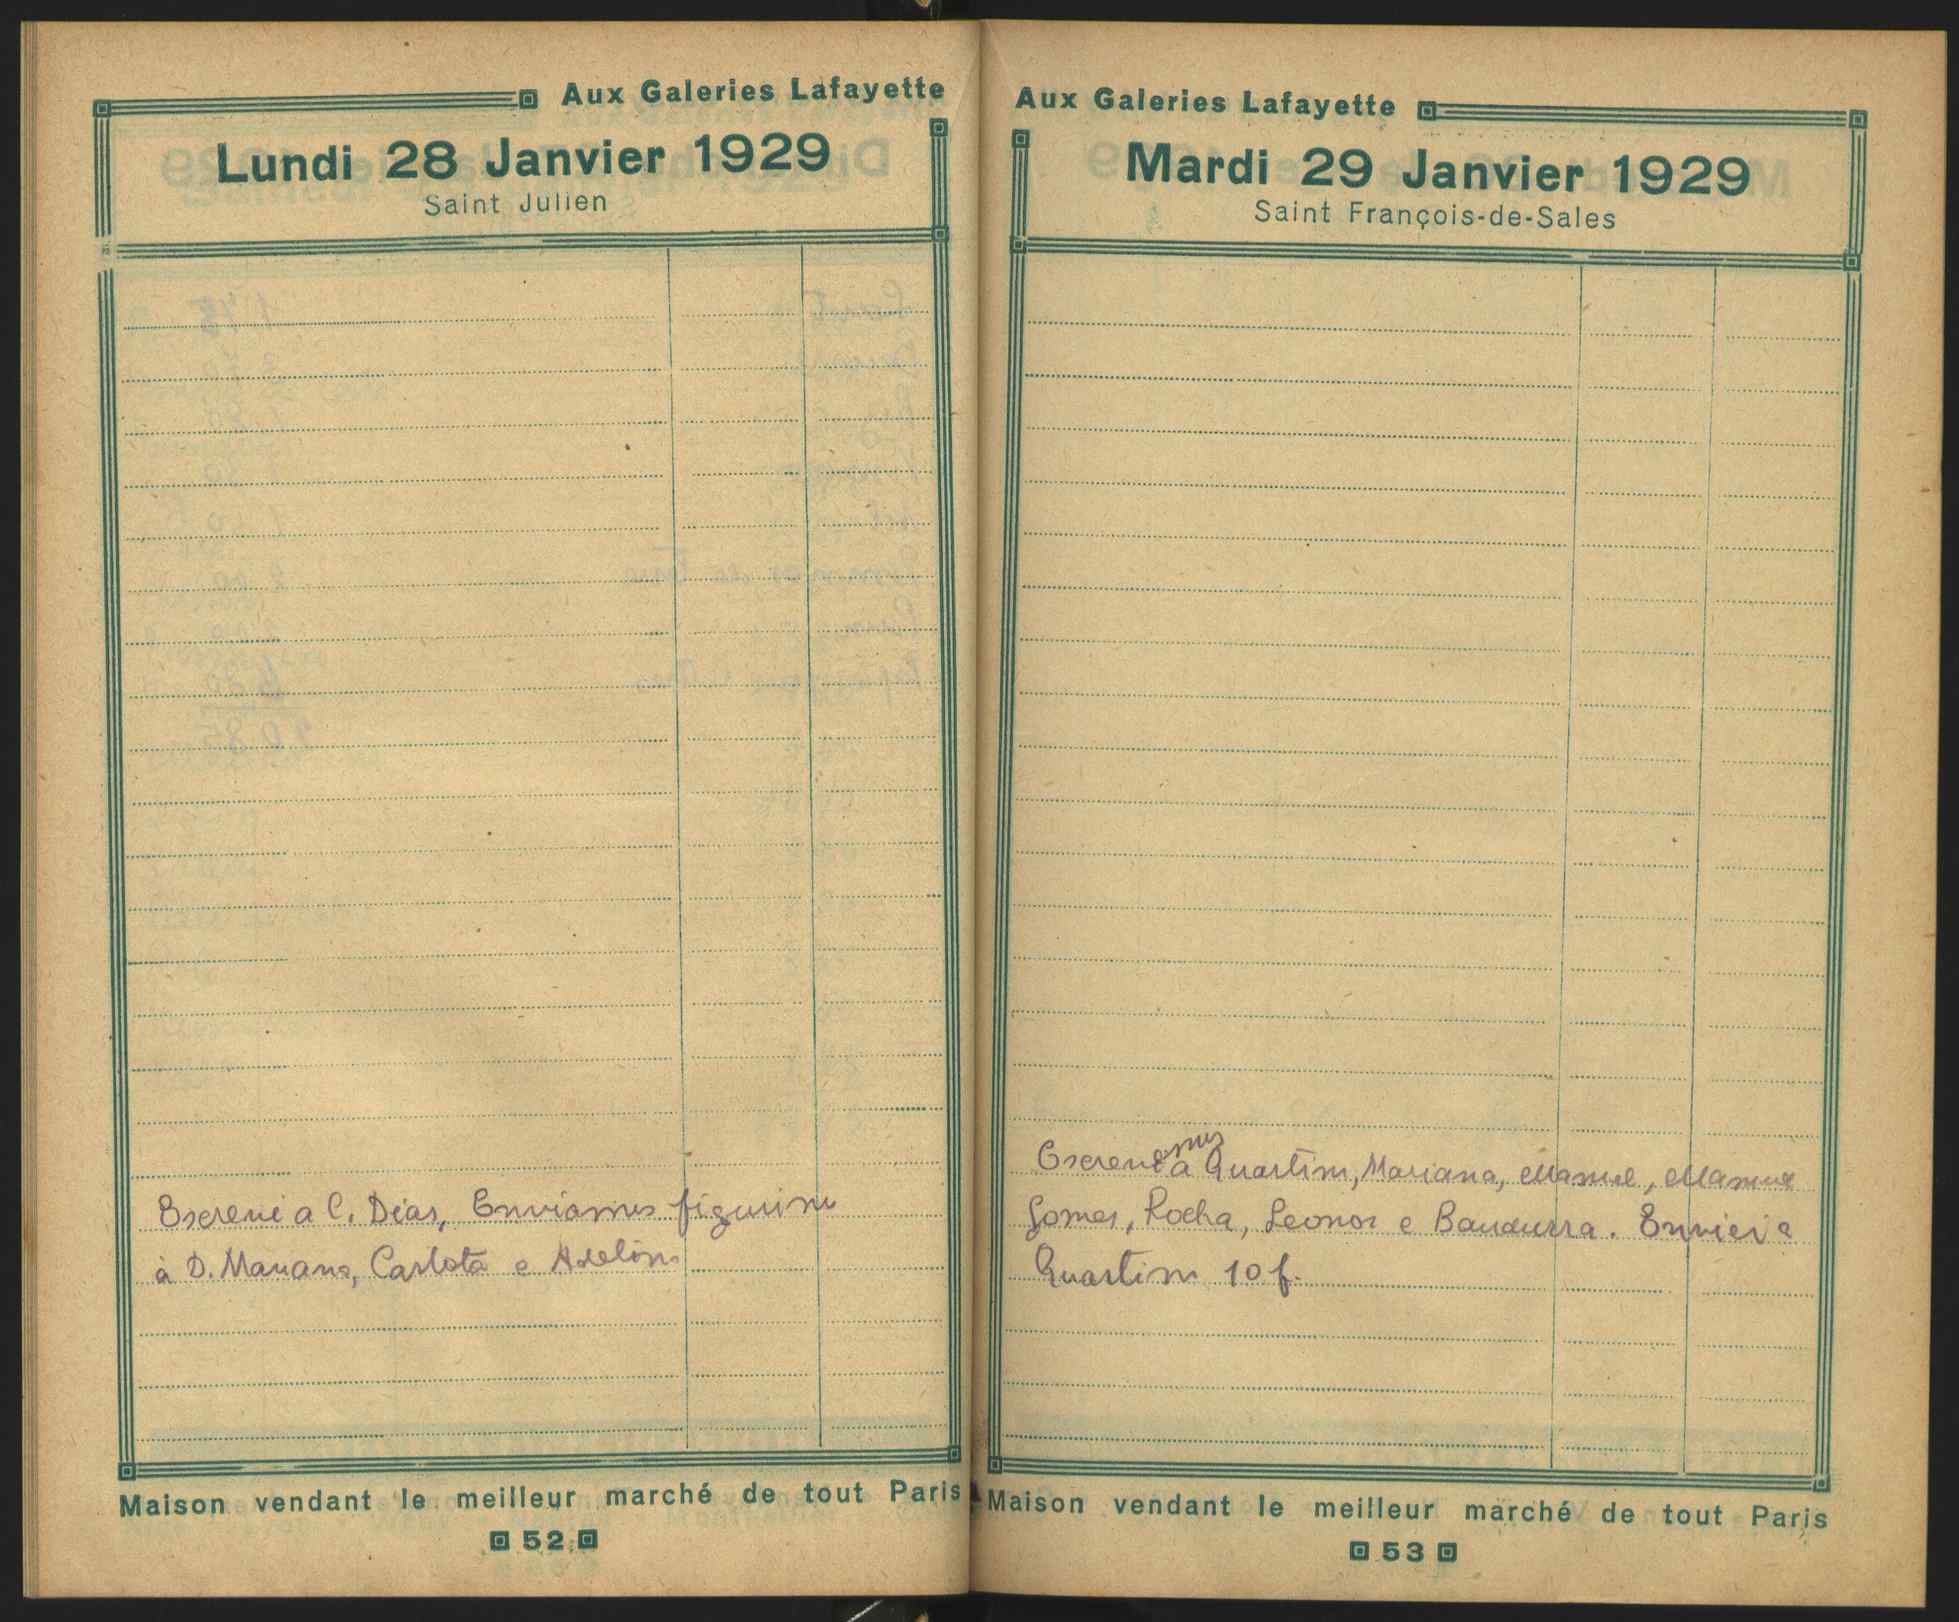 Aux Galeries Lafayette
Lundi 28 Janvier 1929
Saint Julien
Escrevi a C. Dias, Enviamos figurino
à D. Mariana, Carlota e Adelina
Maison vendant le meilleur marché de tout Paris
52
Aux Galeries Lafayette
Mardi 29 Janvier 1929
Saint François-de-Sales
Escrevemos a Quartim, Mariana, Manuel, Manuel
Gomes, Rocha, Leonor e Bandurra. Enviei a
Quartim 10 f.
Maison vendant le meilleur marché de tout Paris
53